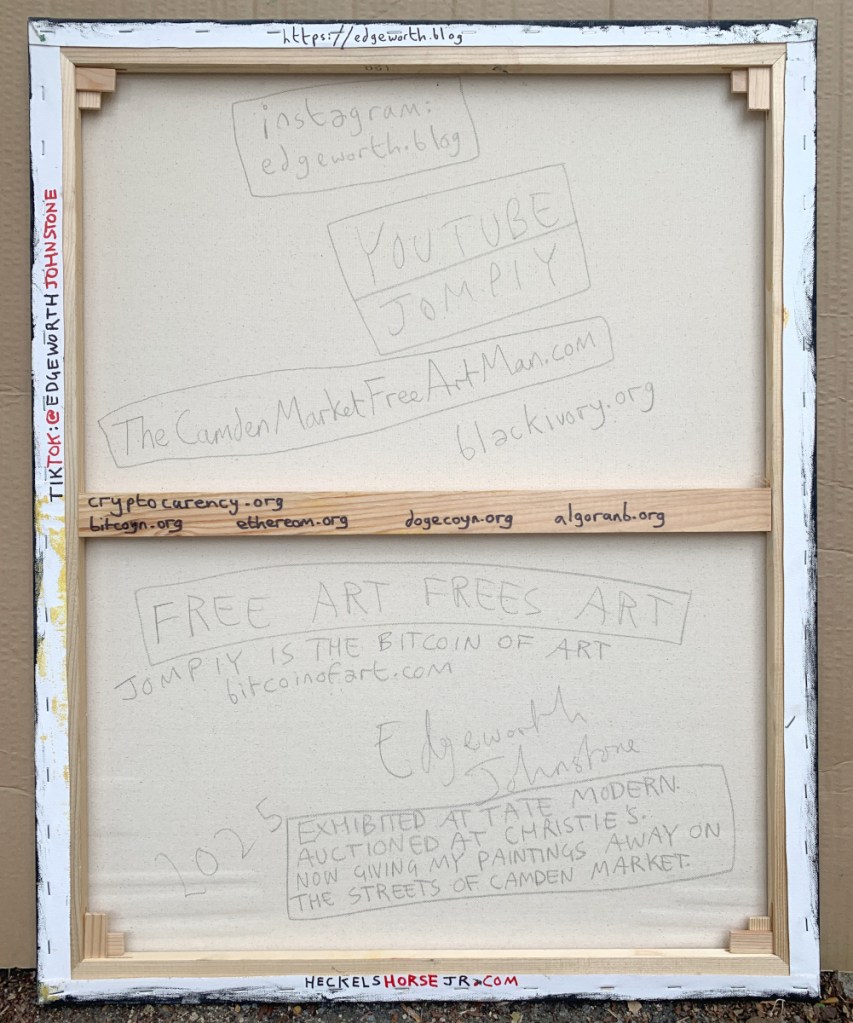 https://edgeworth.blog
instagram:
edgeworth.blog
YOUTUBE
JOMPIY
TheCamdenMarketFreeArtMan.com
blackivory.org
TIKTOK:@EDGEWORTHJOHNSTONE
cryptocarency.org
bitcoyn.org ethereom.org dogecoyn.org algoranb.org
FREE ART FREES ART
JOMPIY IS THE BITCOIN OF ART
bitcoinofart.com
Edgeworth
Johnstone
2025
EXHIBITED AT TATE MODERN.
AUCTIONED AT CHRISTIE'S.
NOW GIVING MY PAINTINGS AWAY ON
THE STREETS OF CAMDEN MARKET.
HECKELSHORSEJR.COM